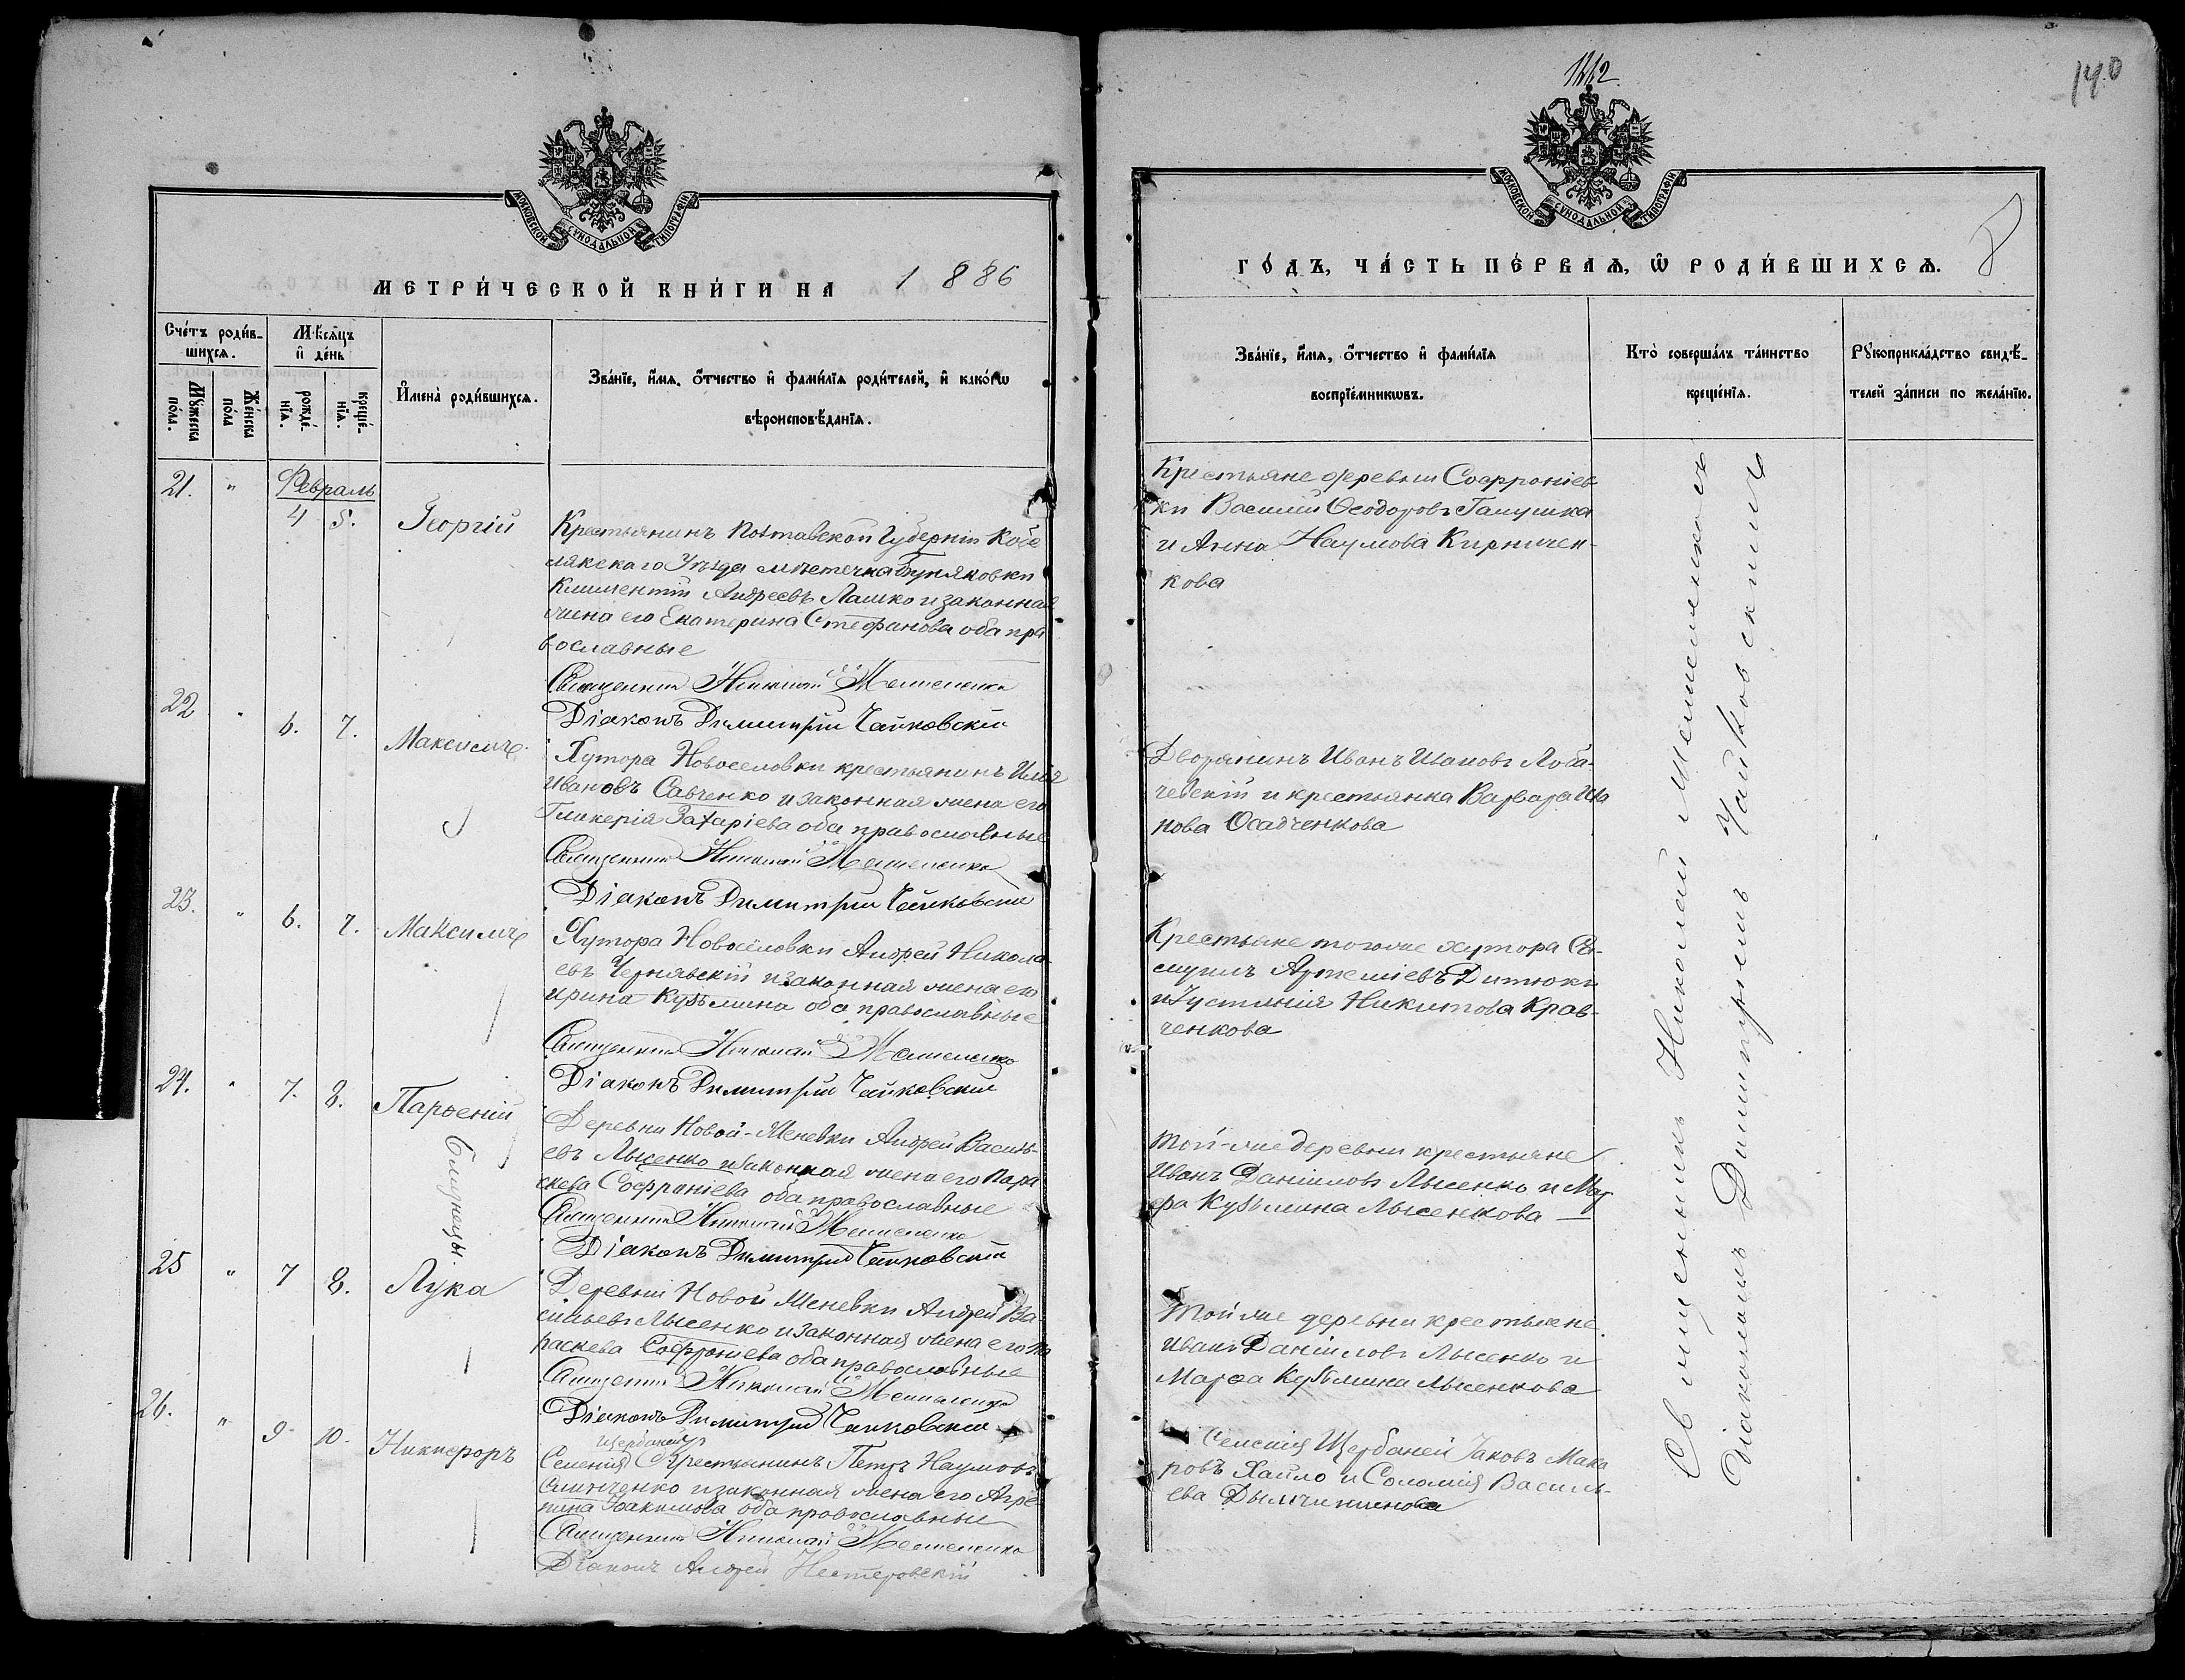 МОСКОВСКОЙ СУНОДАЛЬНОЙ ТИПОГРАФІИ
МЕТРИ́ЧЕСКОЙ КНИ́ГИ НА 1886
Сче́тъ роди́в-
шихсѧ.
Мѣсѧцъ
и де́нь
Му́жеска
по́ла.
Же́нска
по́ла
рожде́-
нїѧ.
креще́-
нїѧ.
И҆мена̀ роди́вшихсѧ.
Зва́нїе, и҆́мѧ, ѻ҆́тчество и҆ фами́лїѧ роди́телей, и҆ како́гѡ
вѣроисповѣ́данїѧ.
21. " Февраль
4 5. Георгій
Крестьянинъ Полтавской Губерніи Кобе
лякскаго Уѣзда мѣстечка
Климентій Андреевъ Лашко и законная
жена его Екатерина Стефанова оба пра
вославные
Священник Николай
Діаконъ Димитрій Чайковскій
22 " 6. 7. Максимъ
Хутора Новоселовки крестьянинъ Илія
Ивановъ Савченко и законная жена его
Гликерія Захаріева оба православные
Священник Николай
Діаконъ Димитрій Чайковскій
23. " 6. 7. Максимъ
Хутора Новосёловки Андрей Никола-
евъ Чернявскій и законная жена его
Ирина Кузьмина оба православные
Священник Николай
Діаконъ Димитрій Чайковскій
24. " 7. 8. Парѳеній
близнецы.
Деревни Новой-Меневки Андрей Василь-
евъ Лысенко и законная жена его Пара
скева Софроніева оба православные
Священник Николай
Діаконъ Димитрій Чайковскій
25 " 7 8. Лука
Деревни Новой Меневки Андрей Ва-
сильевъ Лысенко и законная жена его Па
раскева Софроніева оба православные
Священник Николай
Діаконъ Димитрій Чайковскій
26. " 9 10. Никифоръ
Щербаней
Селенія Крестьянинъ Петръ Наумовъ
и законная жена его Агре-
пина Іоакимова оба православные
Священник Николай
Діаконъ Андрей Нестеровскій
1112
140
МОСКОВСКОЙ СУНОДАЛЬНОЙ ТИПОГРАФІИ
ГО́ДЪ, ЧА́СТЬ ПЕ́РВАѦ, Ѡ҆ РОДИ́ВШИХСѦ.
8
Зва́нїе, и҆́мѧ, ѻ҆́тчество и҆ фами́лїѧ
воспрїе́мникѡвъ.
Кто̀ соверша́лъ та́инство
креще́нїѧ.
Рꙋкоприкла́дство свидѣ́-
телей за́писи по жела́нїю.
Крестьяне деревни Софроніев-
ки Василій Ѳеодоровъ Галушка
и Анна Наумова Кирпичен-
кова
Дворянинъ Иванъ Ивановъ Лоба-
чевскій и крестьянка Варвара Ива
нова Осадченкова
Крестьяне того же хутора Са-
муилъ Артеміевъ Дитюкъ
и Іустинія Никитова Крав-
ченкова
Той-же деревни крестьяне
Иванъ Даніиловъ Лысенко и Мар
фа Кузьмина Лысенкова —
Той же деревни крестьяне
Иванъ Даніиловъ Лысенко и
Марѳа Кузьмина Лысенкова
Селенія Щербаней Іаковъ Мака
ровъ Хайло и Соломія Василь-
ева
Священникъ Николай
Діаконъ Димитрій Чайковскій